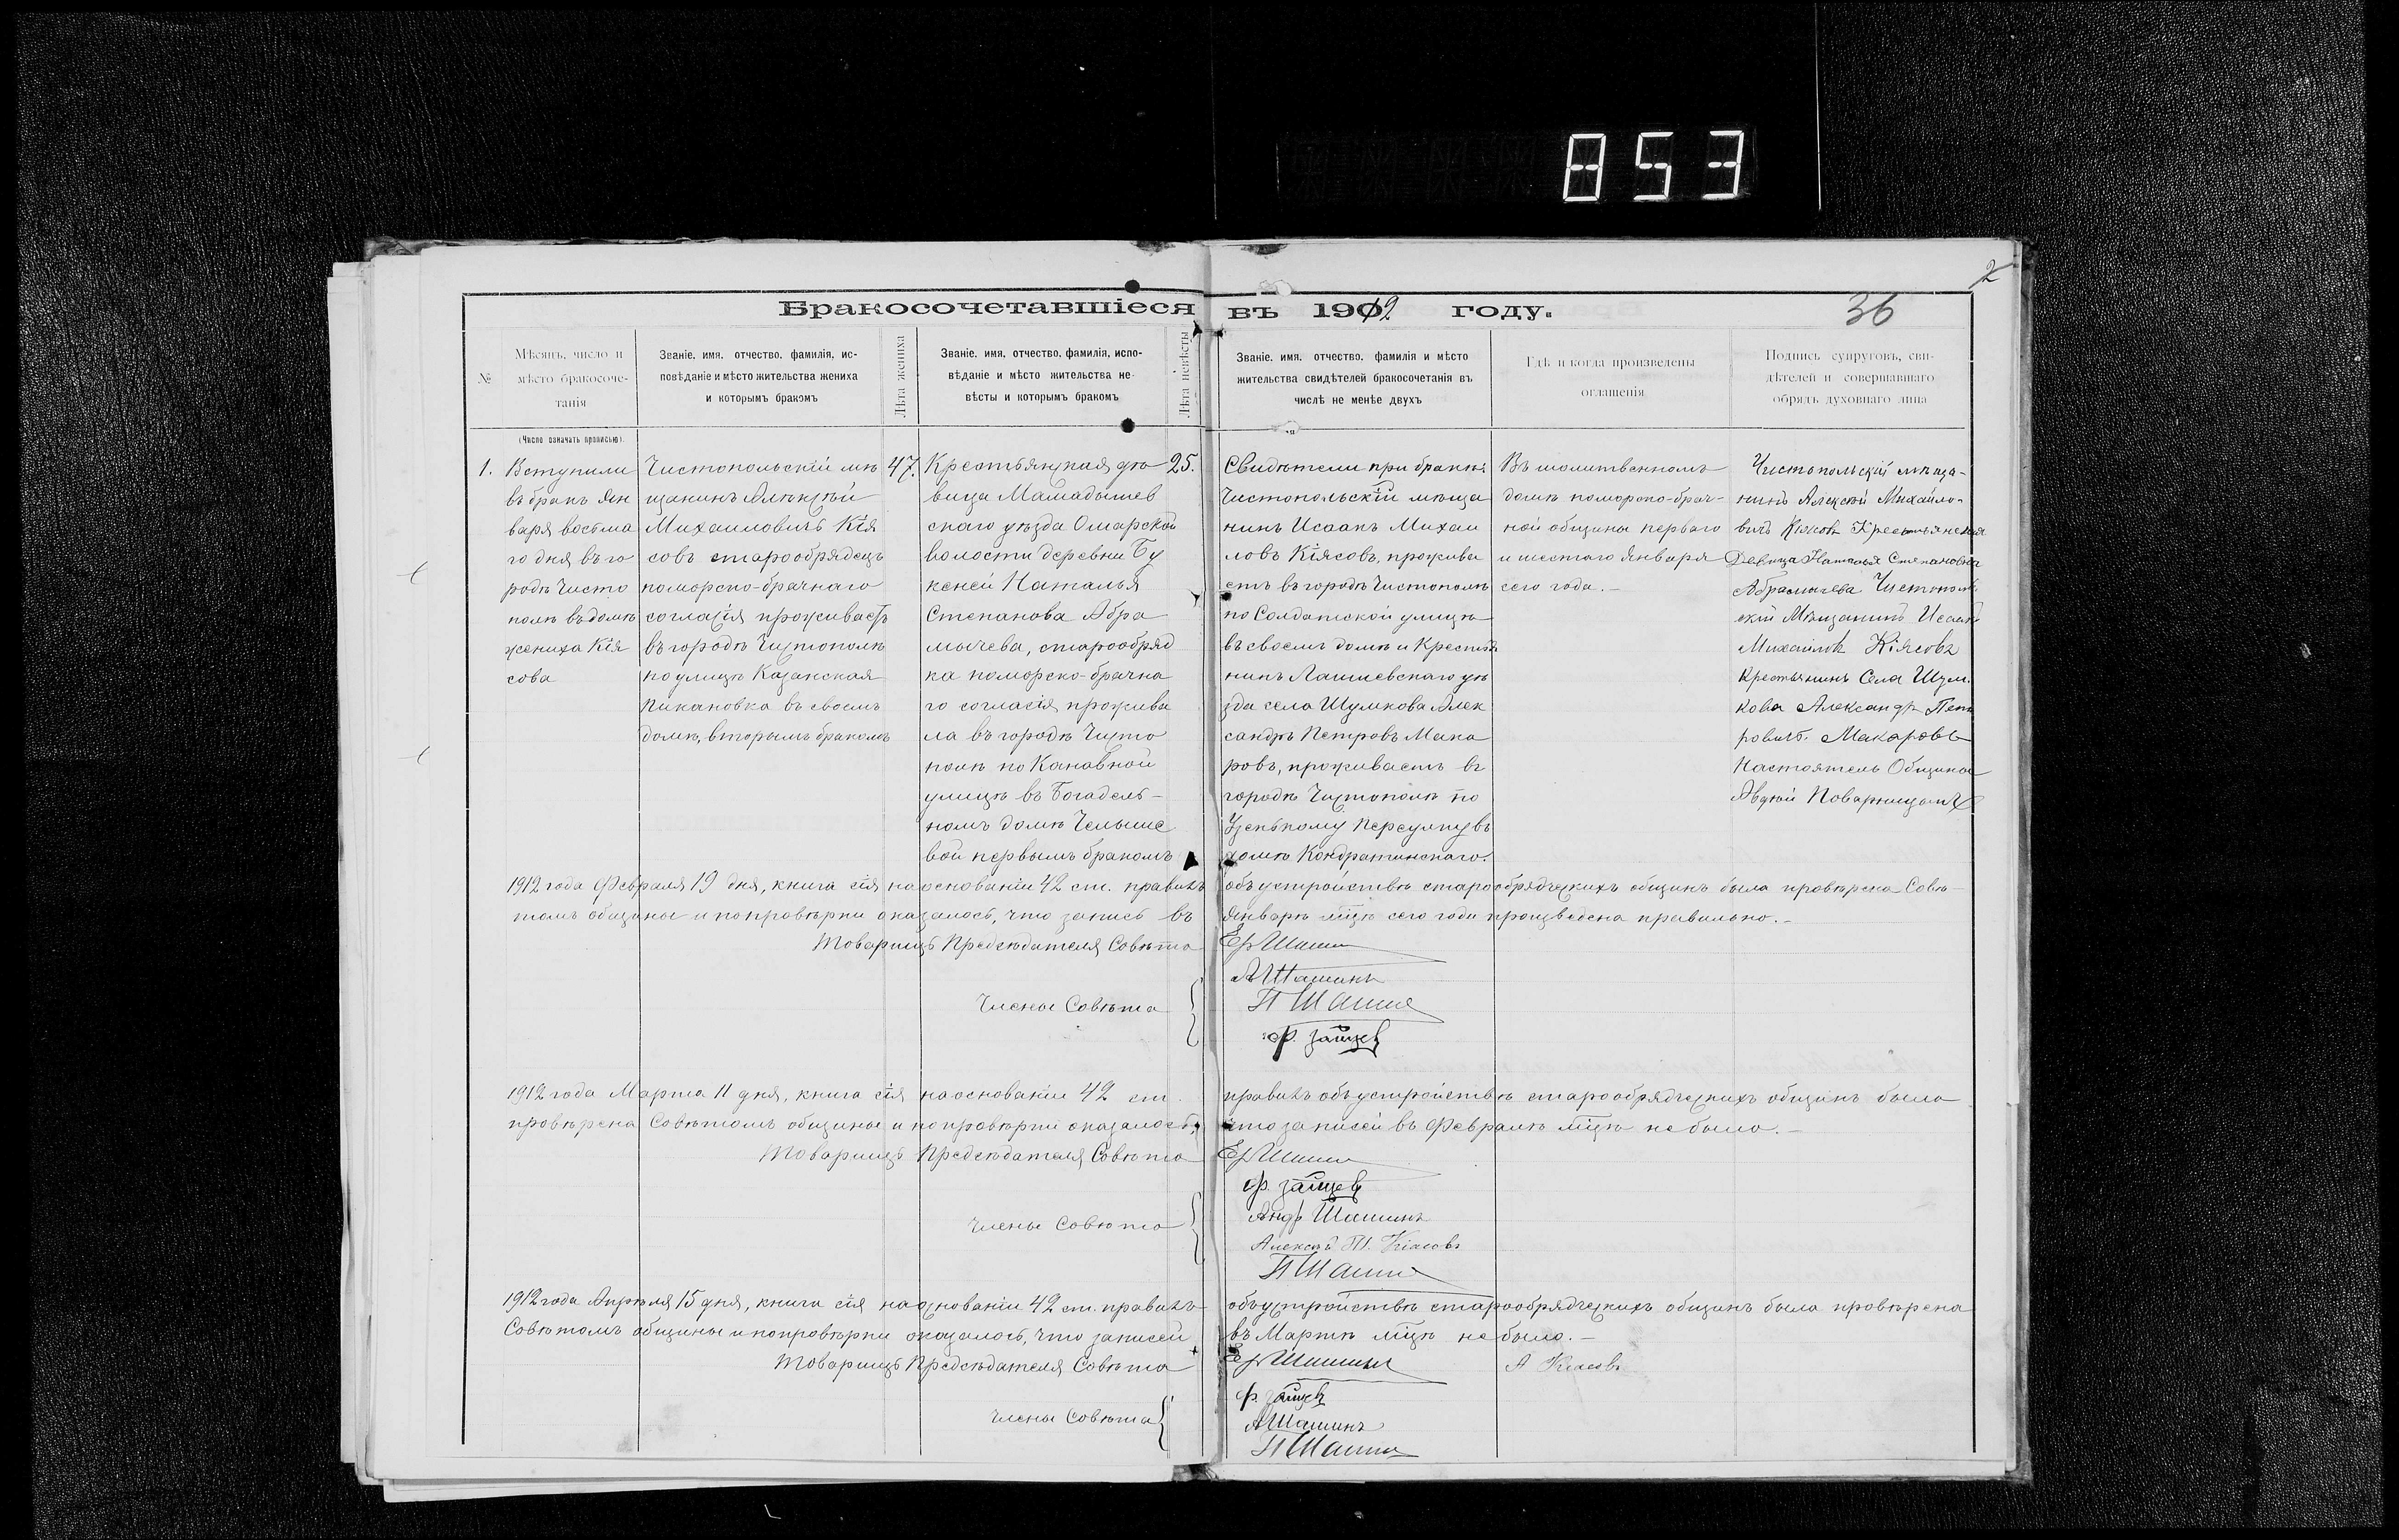 853
2
Бракосочетавшіеся въ 1912 году.
36
№
Мѣсяцъ, число и
мѣсто бракосоче-
танія
(Число означать прописью).
Званіе, имя, отчество, фамилія, ис-
повѣданіе и мѣсто жительства жениха
и которымъ бракомъ
Лѣта жениха
Званіе, имя, отчество, фамилія, испо-
вѣданіе и мѣсто жительства не-
вѣсты и которымъ бракомъ
Лѣта невѣсты
Званіе, имя, отчество, фамилія и мѣсто
жительства свидѣтелей бракосочетанія въ
числѣ не менѣе двухъ
Гдѣ и когда произведены
оглашенія
Подпись супруговъ, сви-
дѣтелей и совершавшаго
обрядъ духовнаго лица
1.
Вступили
въ бракъ Ян
варя восьма
го дня въ го
родѣ Чисто
полѣ въ домѣ
жениха Кія
сова
Чистопольскій мѣ
щанинъ Алексѣй
Михаиловичъ Кія
совъ старообрядецъ
поморско-брачнаго
согласія проживаетъ
въ городѣ Чистополѣ
по улицѣ Казанская
Пикановка въ своемъ
домѣ, вторымъ бракомъ
47.
Крестьянская дѣ
вица Мамадышев
скаго уѣзда Омарской
волости деревни Бу
кеней Наталья
Степанова Абра
мычева, старообряд
ка поморско-брачна
го согласія прожива
ла въ городѣ Чисто
полѣ по Канавной
улицѣ въ Богадель-
номъ домѣ Челыше
вой первымъ бракомъ
25.
Свидѣтели при бракѣ:
Чистопольскій мѣща
нинъ Исаакъ Михаи
ловъ Кіясовъ, прожива
етъ въ городѣ Чистополѣ
по Солдатской улицѣ
въ своемъ домѣ и Крестья
нинъ Лаишевскаго уѣ
зда села Шумкова Алек
сандръ Петровъ Мака
ровъ, проживаетъ въ
городѣ Чистополѣ по
Узенькому переулку въ
домѣ Кондратинскаго.
Въ молитвенномъ
домѣ поморско-брач-
ной общины перваго
и шестаго Января
сего года.-
Чистопольскій мѣща-
нинъ Алексѣй Михайло-
вичъ Кіясовъ Крестьянская
Девица Наталья Степановна
Абрамычева Чистополь
скій Мѣщанинъ Исаакъ
Михаиловъ Кіясовъ
Крестьянинъ Села Шум.
кова Александръ Пет
ровичъ. Макаровъ
Настоятель Общины
Авдѣй Поварницынъ
1912 года Февраля 19 дня, книга сія на основаніи 42 ст. правилъ объ устройствѣ старообрядческихъ общинъ была провѣрена Совѣ-
томъ общины и по провѣрки оказалось, что запись въ Январѣ мцѣ сего года произведена правильно.-
Товарищъ Предсѣдателя Совѣта
Члены Совѣта
А Шашинъ
П Шашин
Ф. Зайцев
1912 года Марта 11 дня, книга сія на основаніи 42 ст. правилъ объ устройствѣ старообрядческихъ общинъ была
провѣрена Совѣтомъ общины и по провѣрки оказалось, что записей въ Февралѣ мцѣ не было.-
Товарищъ Предсѣдателя Совѣта
Члены Совѣта
Ф. Зайцев
Андр Шашинъ
Алексѣй М. Кіясовъ
П Шашин
1912 года Апрѣля 15 дня, книга сія на основаніи 42 ст. правилъ объ устройствѣ старообрядческихъ общинъ была провѣрена
Совѣтомъ общины и по провѣрки оказалось, что записей въ Мартѣ мцѣ не было.-
Товарищъ Предсѣдателя Совѣта
А Кіясовъ
Члены Совѣта
Ф. Зайцев
А Шашинъ
П Шашин